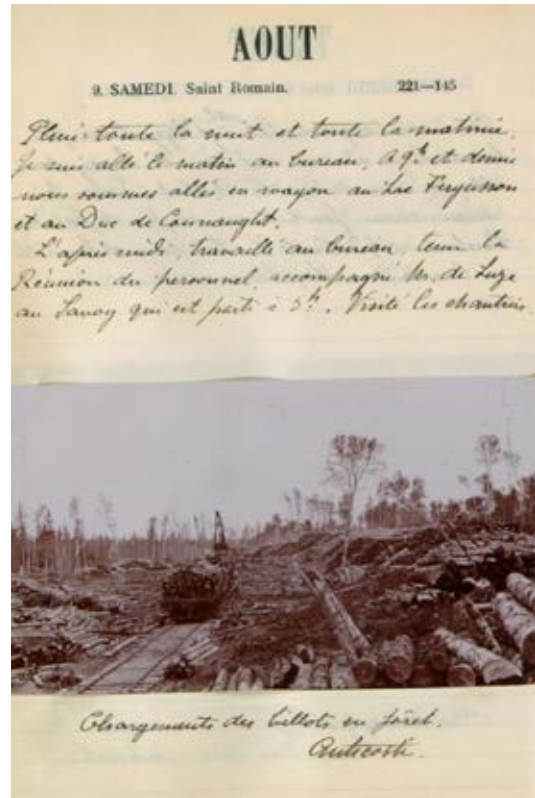 AOUT
9. SAMEDI. Saint Romain. 221—145
Pluie toute la nuit et toute la matinée.
Je suis allé le matin au bureau, à 9h et demie
nous sommes allés en wagon au Lac Ferguson
et au Duc de Connaught.
L'après midi, travaillé au bureau, tenu la
Réunion du personnel, accompagné Mr. de Luze
au Savoy qui est parti à 5h. Visité les chantiers.
Chargements des billots en forêt.
Anticosti.